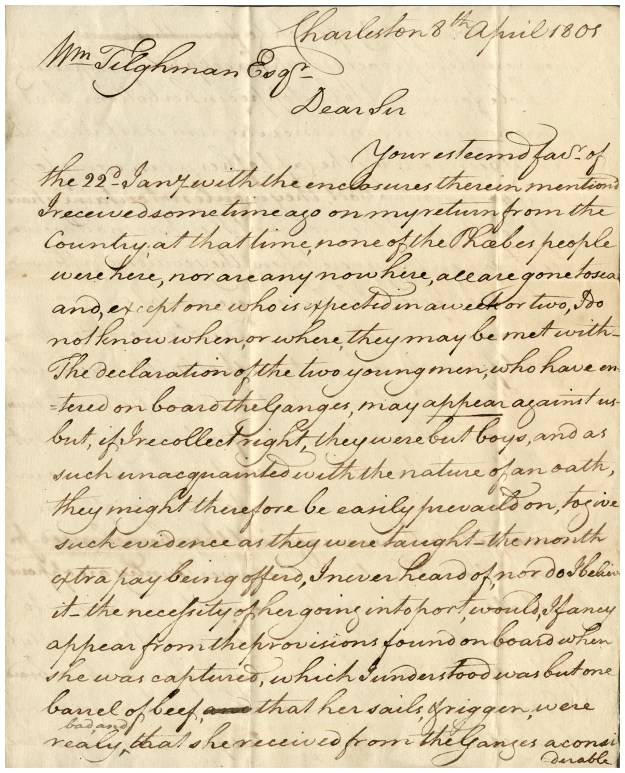 Charleston 8th April 1801
Wm Tilghman Esqr.
Dear Sir
Your esteemd favr. of
the 22d. Jany. with the enclosures therein mentiond
I received some time ago on my return from the
Country, at that time, none of the Phœbes people
were here, nor are any now here, all are gone to sea
and, except one who is expected in a week or two, I do
not know when or where, they may be met with_
The declaration of the two young men, who have en-
=tered on board the Ganges, may appear against us-
but, if I recollect right, they were but boys, and as
such unacquainted with the nature of an oath,
they might therefore be easily prevaild on, to give
such evidence as they were taught_ the month
extra pay being offerd, I never heard of, nor do I believe
it_ the necessity of her going into port, would, I fancy
appear from the provisions found on board when
she was captured, which I understood was but one
barrel of beef, and that her sails & riggen, were
bad, and
realy, that she received from the Ganges a consi
derable